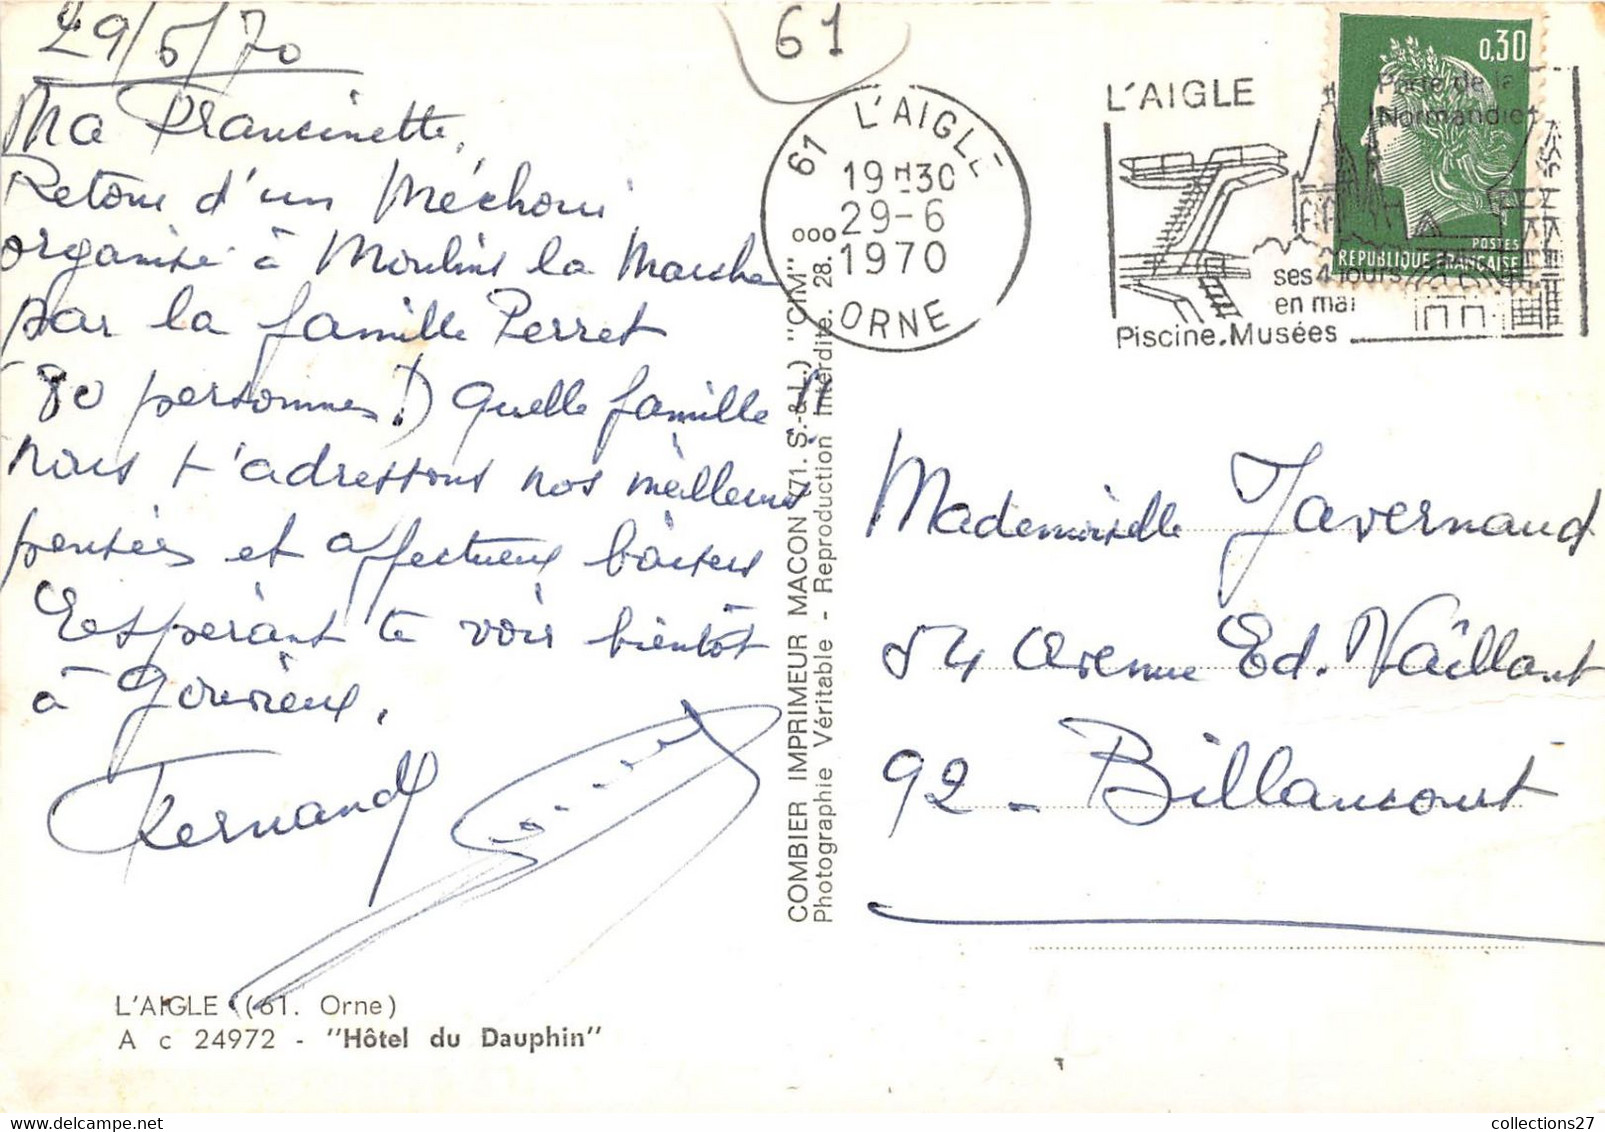 29/6/70
61
Ma Francinette,
Retour d'un Méchoui
organisé à Moulins la Marche
par la famille Perret
(80 personnes!) Quelle famille!!
Nous t'adressons nos meilleures
pensées et affectueux baisers
Espérant te voir bientôt
à Gouvieux.
Fernand
L'AIGLE (61. Orne)
A c 24972 - "Hôtel du Dauphin"
COMBIER IMPRIMEUR MACON (71. S.-&-L.) "CIM"
Photographie Véritable - Reproduction Interdite. 28. ooo
61 L'AIGLE
19H30
29-6
1970
ORNE
L'AIGLE
Porte de la
Normandie
ses 4 jours
en mai
Piscine. Musées
0,30
POSTES
REPUBLIQUE FRANÇAISE
Mademoiselle Javernaud
54 Avenue Ed. Vaillant
92 - Billancourt
collections27